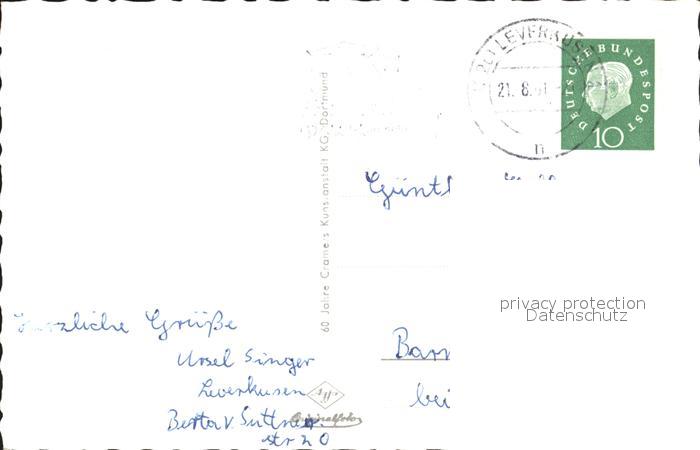 LEVERKUSEN
21. 8. 61
n
DEUTSCHE BUNDESPOST
10
60 Jahre Cramers Kunstanstalt KG, Dortmund
Günth
privacy protection
Datenschutz
Herzliche Grüße
Ursel Singer
Leverkusen
Berta v. Suttner
str 20
Originalfoto
Barn
bei